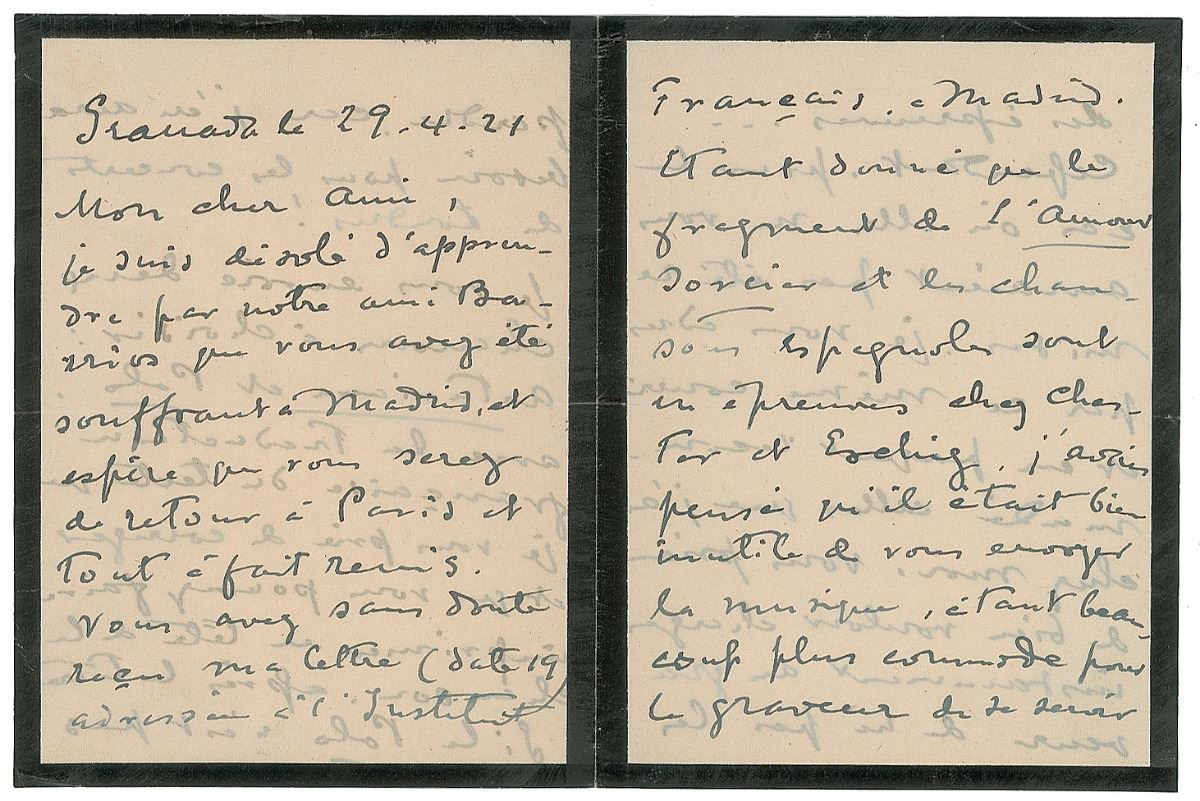 Granada le 29-4-21
Mon cher Ami,
je suis désolé d'appren-
dre par notre ami Ba-
rrios que vous avez été
souffrant à Madrid, et
espère que vous serez
de retour à Paris et
tout à fait remis.
Vous avez sans doute
reçu ma lettre (date 19)
adressée à l'Institut
Français, à Madrid.
Etant donné que le
fragment de L'Amour
Sorcier et les chan-
sons espagnoles sont
en épreuves chez Ches-
ter et Eschig, j'avais
pensé qu'il était bien
inutile de vous envoyer
la musique, étant beau-
coup plus commode pour
le graveur de se servir